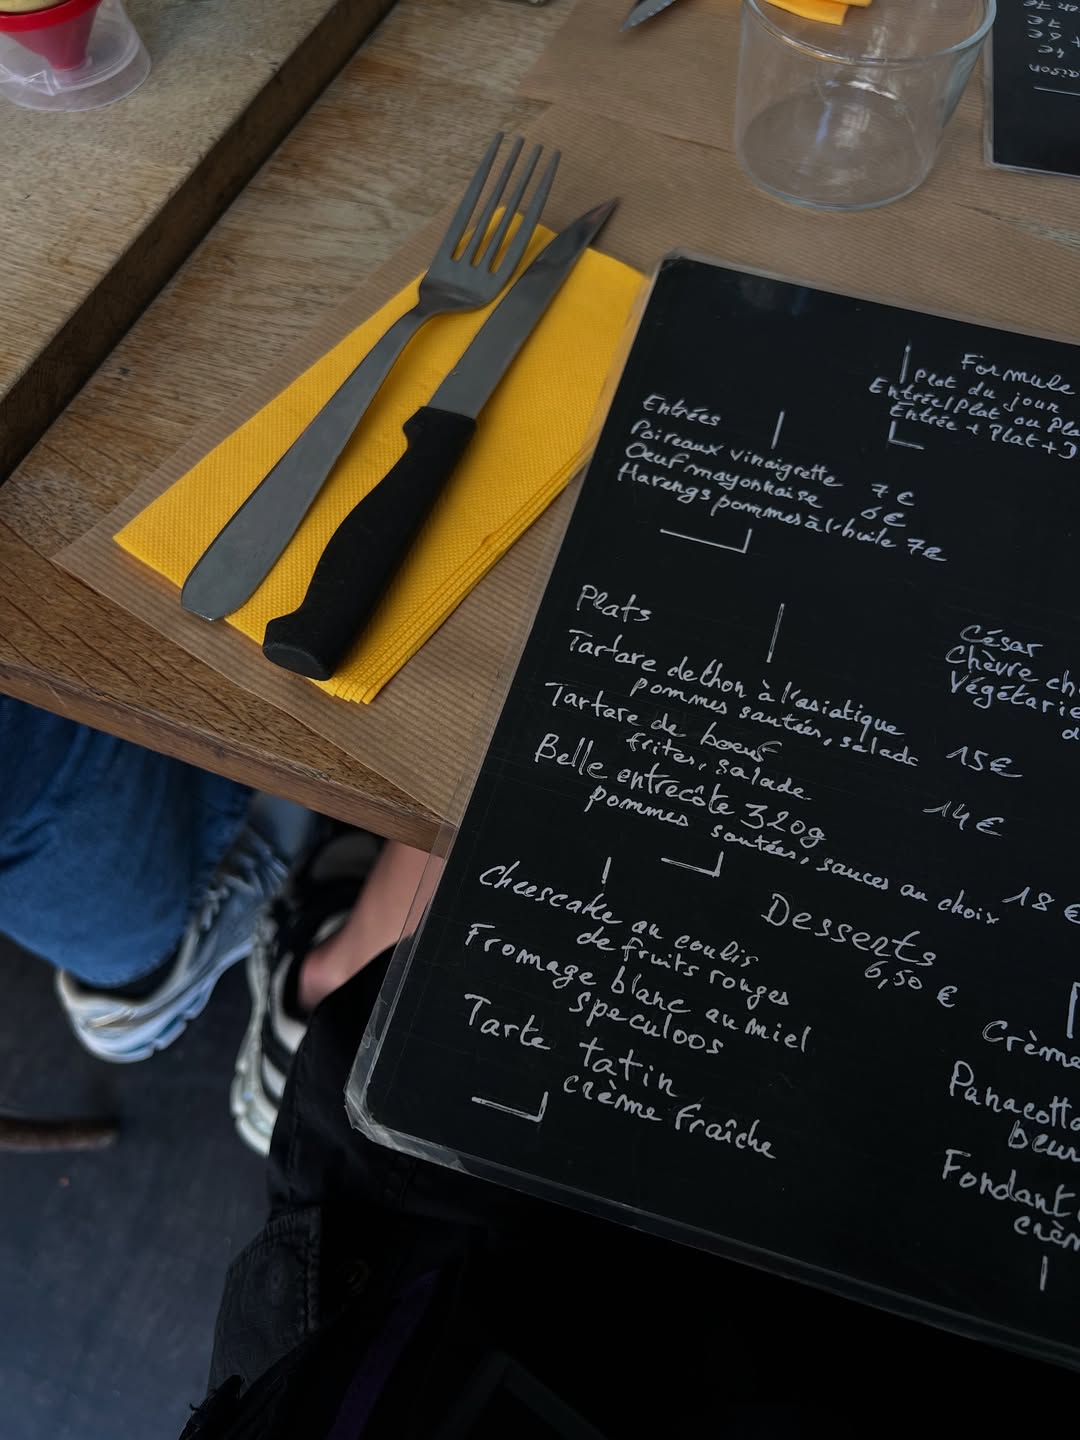 Formule
plat du jour
Entrée/Plat ou Pla
Entrée + Plat +
Entrées
Poireaux vinaigrette 7€
Oeuf mayonnaise 6€
Harengs pommes à l'huile 7€
Plats
Tartare de thon à l'asiatique
pommes sautées, salade 15€
Tartare de boeuf
frites, salade 14€
Belle entrecôte 320g
pommes sautées, sauces au choix 18€
César
Chèvre ch
Végétarie
d
Desserts
6,50 €
Cheescake au coulis
de fruits rouges
Fromage blanc au miel
speculoos
Tarte tatin
crème fraîche
Crème
Panacotta
beur
Fondant
crèm
7€
7€
6€
4€
aison